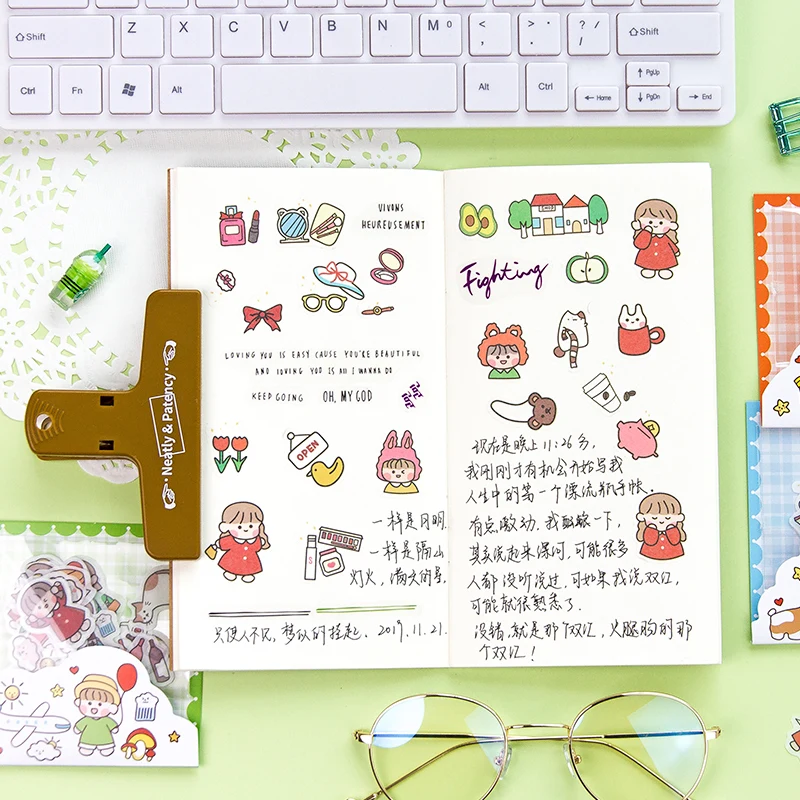 Shift Z X C V B N M 0 < , > . ? / Shift
PgUp
Ctrl Fn Alt Alt Ctrl Home PgDn End
Neatly & Patency
VIVONS
HEUREUSEMENT
LOVING YOU IS EASY CAUSE YOU'RE BEAUTIFUL
AND LOVING YOU IS ALL I WANNA DO
KEEP GOING OH, MY GOD
OPEN
一样是月明
一样是隔山
灯火，满天的星
只使人不见，梦似的挂起. 2019.11.21.
Fighting
现在是晚上11:26分，
我刚刚才有机会开始写我
人生中的第一个漂流瓶手帐.
有点激动.我酝酿一下，
其实说起来漯河，可能很多
人都没听说过，可如果我说双汇，
可能就很熟悉了.
没错，就是那个双汇，火腿肠的那
个双汇！